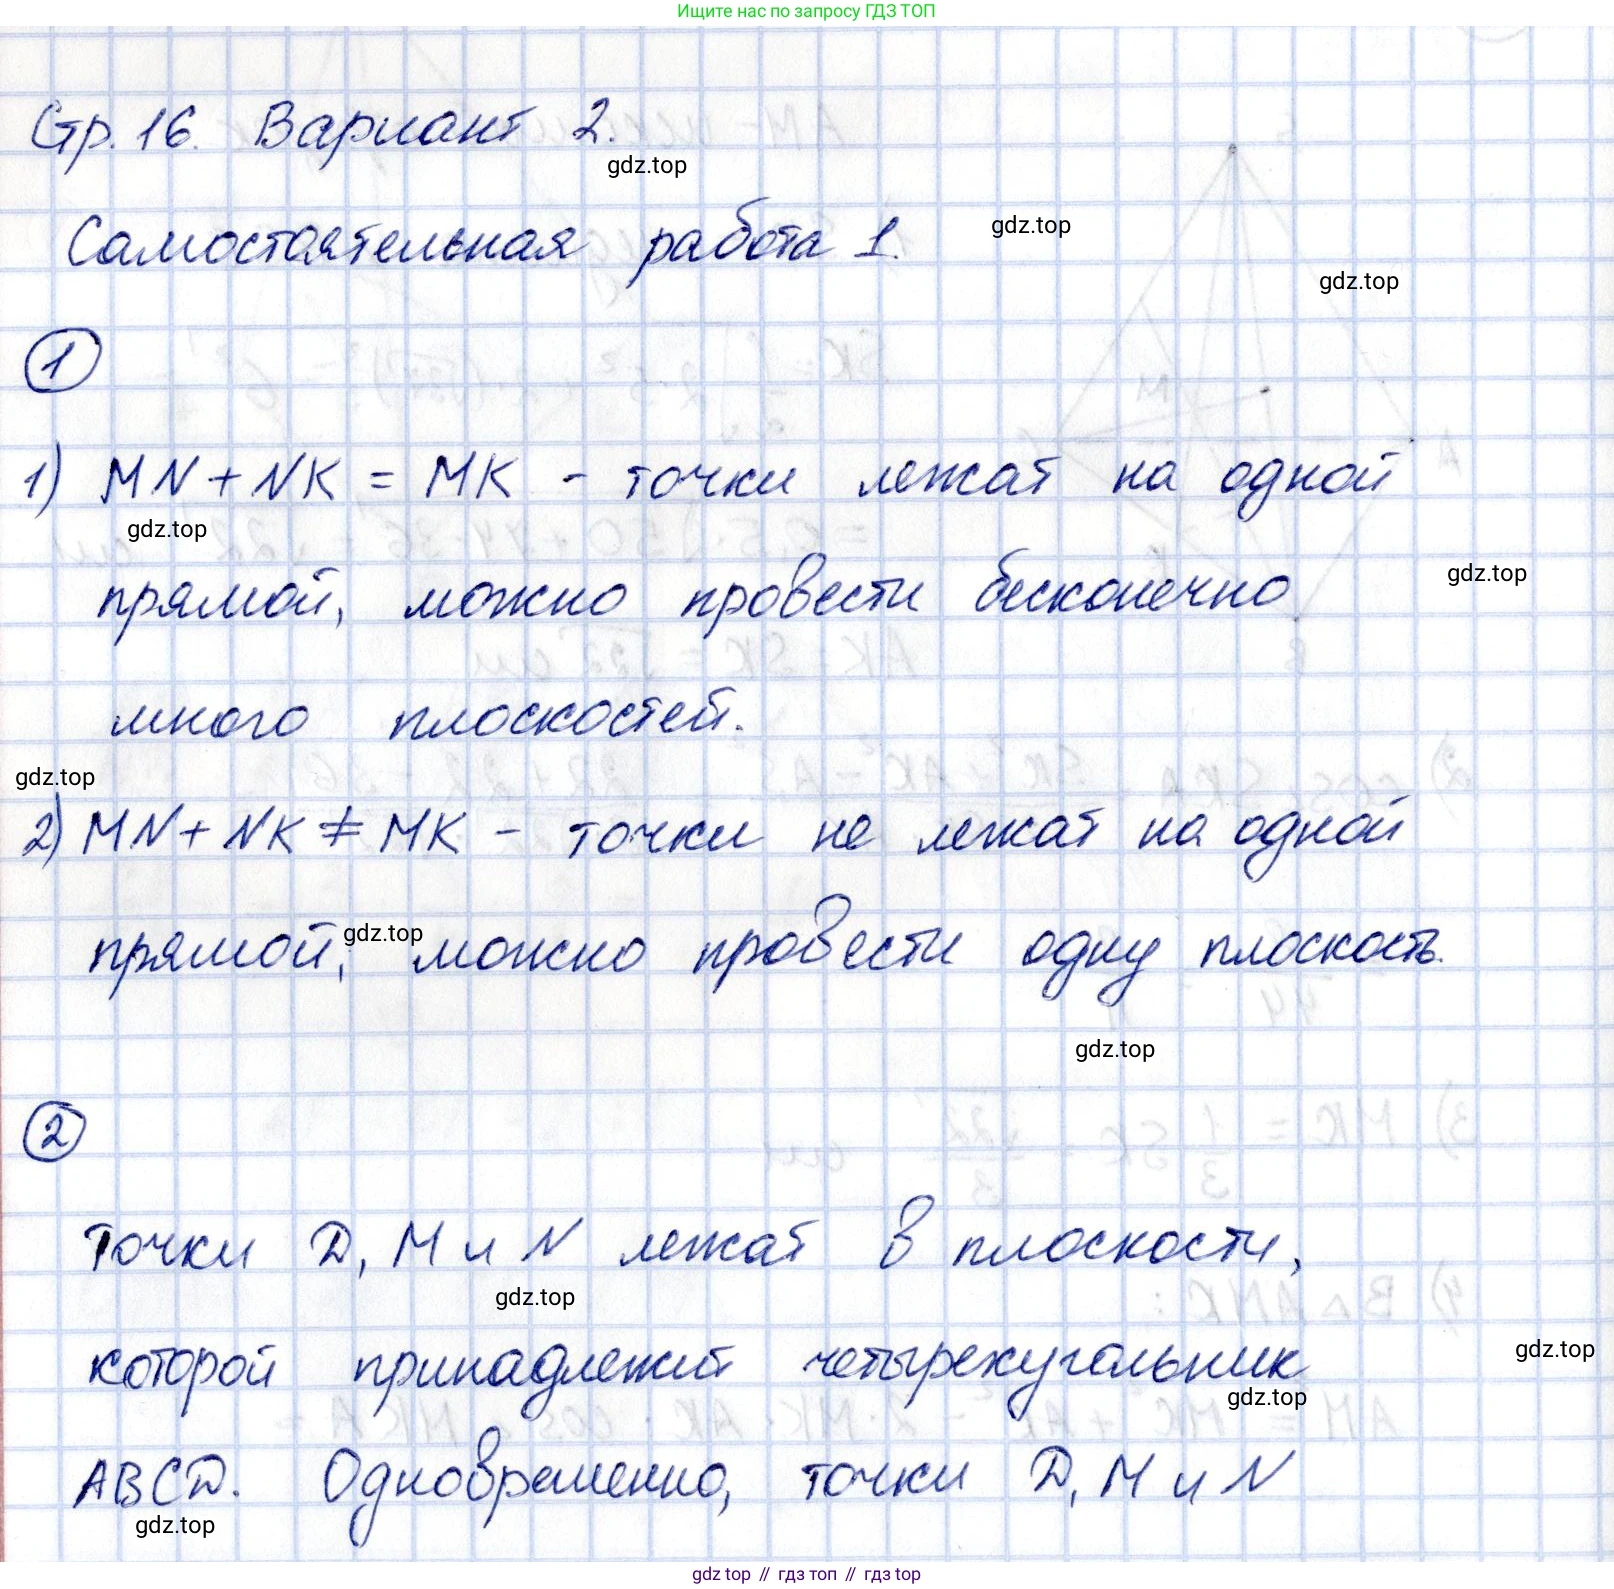 Ищите нас по запросу ГДЗ ТОП
Стр. 16. Вариант 2.
gdz.top
Самостоятельная работа 1.
gdz.top
gdz.top
1
1) MN + NK = MK - точки лежат на одной
gdz.top
прямой, можно провести бесконечно
gdz.top
много плоскостей.
gdz.top
2) MN + NK ≠ MK - точки не лежат на одной
прямой, можно провести одну плоскость.
gdz.top
gdz.top
2
Точки D, M и N лежат в плоскости,
gdz.top
которой принадлежит четырехугольник
gdz.top
gdz.top
ABCD. Одновременно, точки D, M и N
gdz.top
gdz top // гдз топ // гдз top